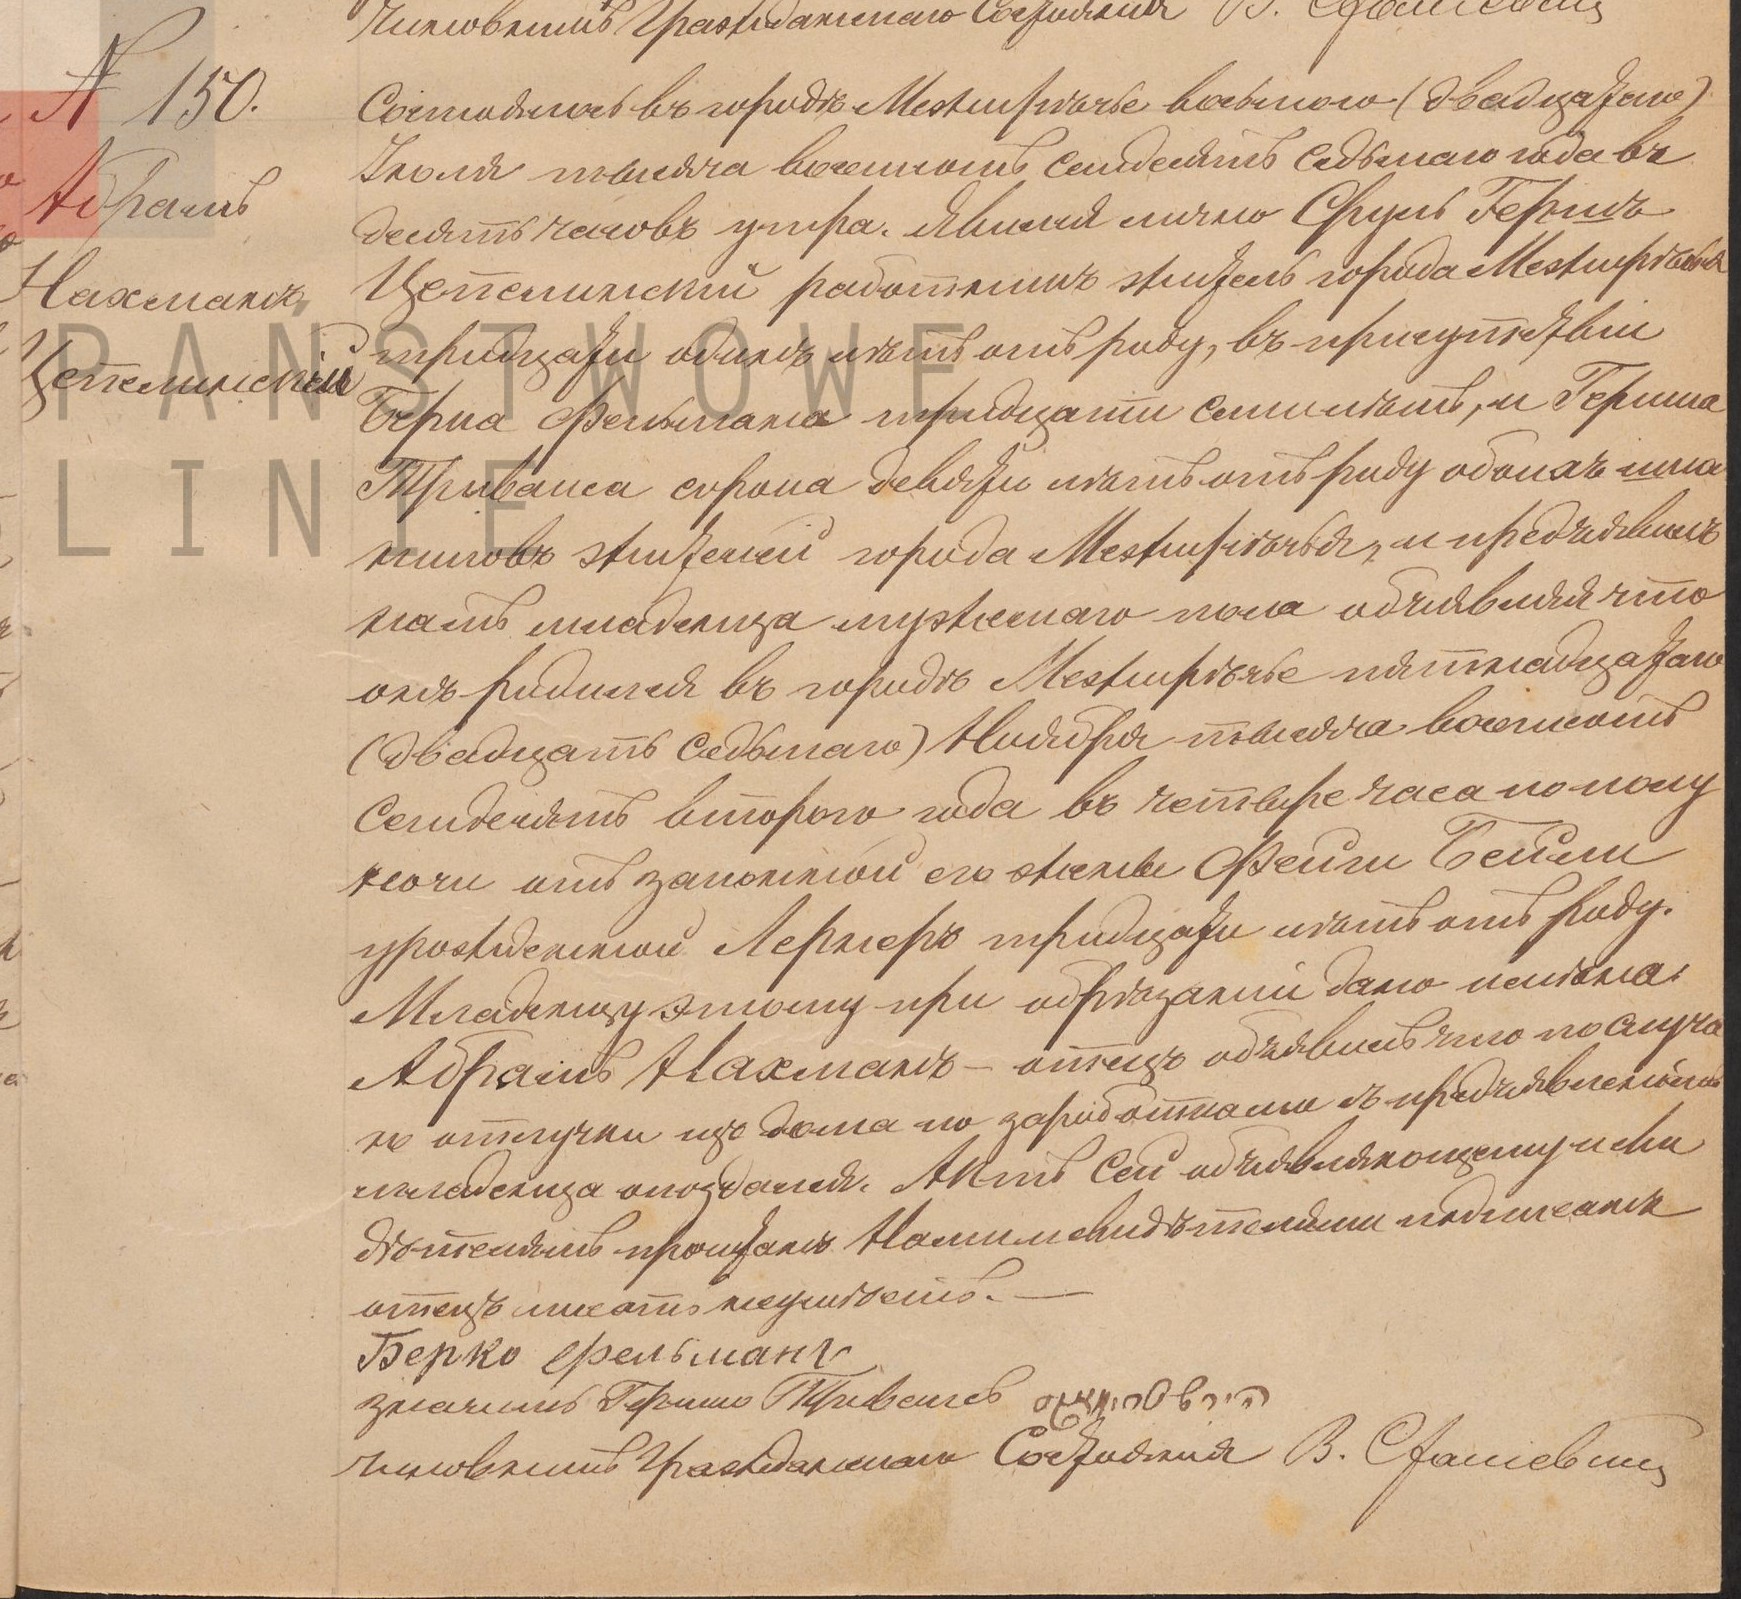 Чиновникъ Гражданскаго Состоянія В.
№ 150.
Абрамъ
Нахманъ
Цепелинскій
Состоялось въ городѣ Межирѣчье восьмого (двадцатаго)
Іюля тысяча восемьсотъ семдесятъ седьмаго года въ
десять часовъ утра. Явился лично Сруль Гершъ
Цепелинскій работникъ житель города Межирѣчья
тридцати одинъ лѣтъ отъ роду, въ присутствіи
Берка Фельмана тридцати семи лѣтъ, и Герша
Триваша сорока девяти лѣтъ отъ роду обоихъ
жителей города Межирѣчья, и предъявилъ
намъ младенца мужескаго пола объявляя что
онъ родился въ городѣ Межирѣчье пятнадцатаго
(двадцать седьмаго) Ноября тысяча восемьсотъ
семдесятъ второго года въ четыре часа по полу
ночи отъ законной его жены Фейги Бейли
урожденной Лернеръ тридцати лѣтъ отъ роду.
Младенцу этому при обрѣзаніи дано имѣна
Абрамъ Нахманъ – отецъ объявилъ что по случа
ю отлучки изъ дома по заработкамъ съ предъявленіемъ
младенца опоздался. Актъ сей объявляющему и сви
дѣтелямъ прочитанъ Нами и свидѣтелями подписанъ
отецъ писать неумѣетъ. —
Берко Фельманъ
значитъ Гершко Тривашъ
Чиновникъ Гражданскаго Состоянія В.
PAŃSTWOWE
LINIE